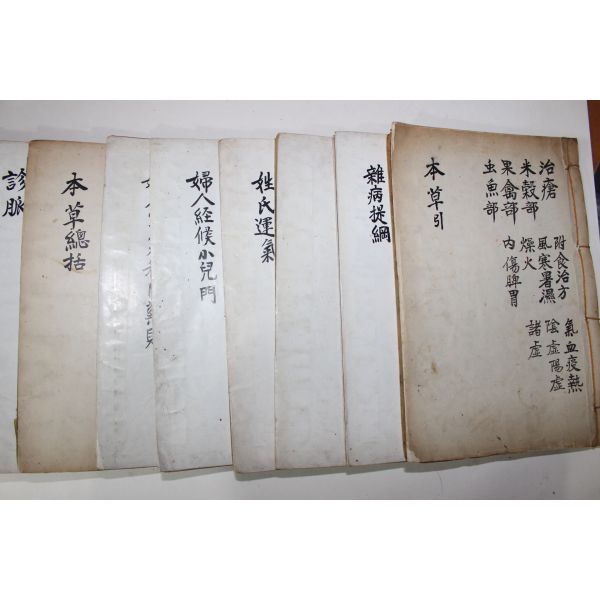 治瘡 附食治方 氣血疫熱
米穀部 風寒暑濕 陰虛陽虛
果禽部 燥火 諸虛
虫魚部 內傷脾胃
本草引
雜病提綱
姓氏運氣
婦人経候小兒門
本草總括
診脈